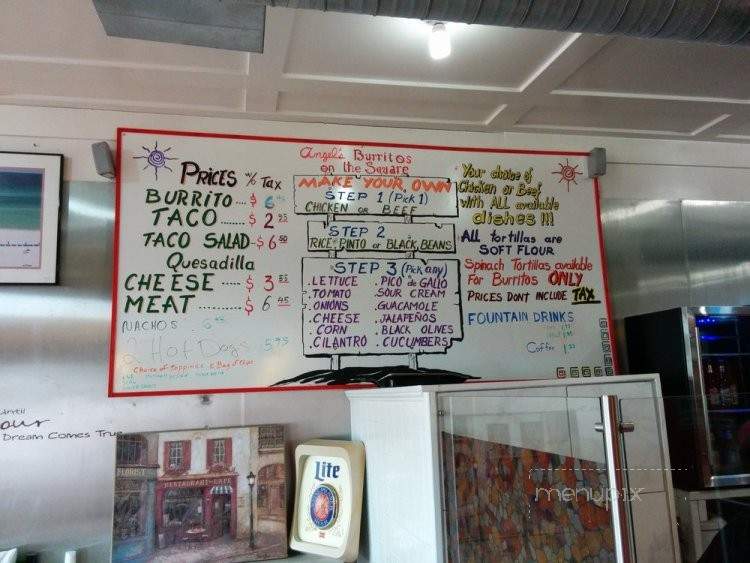 Angel's Burritos
on the Square
PRICES W/ TAX
BURRITO ..... $ 6
TACO ..... $ 2 95
TACO SALAD - $ 6 50
Quesadilla
CHEESE ...... $ 3 85
MEAT ...... $ 6 45
NACHOS
2 Hot Dogs 5
Choice of toppings & Bag of chips
MAKE YOUR OWN
STEP 1 (Pick 1)
CHICKEN OR BEEF
STEP 2
RICE - PINTO or BLACK BEANS
STEP 3 (Pick any)
.LETTUCE .PICO de GALLO
.TOMATO .SOUR CREAM
.ONIONS .GUACAMOLE
.CHEESE .JALAPEÑOS
.CORN .BLACK OLIVES
.CILANTRO .CUCUMBERS
Your choice of
Chicken or Beef
with ALL available
dishes !!!
ALL tortillas are
SOFT FLOUR
Spinach Tortillas available
For Burritos ONLY
PRICES DON'T INCLUDE TAX
FOUNTAIN DRINKS
Coffee
our
Dream Comes True
FLORIST
RESTAURANT-CAFE
Lite
menupix